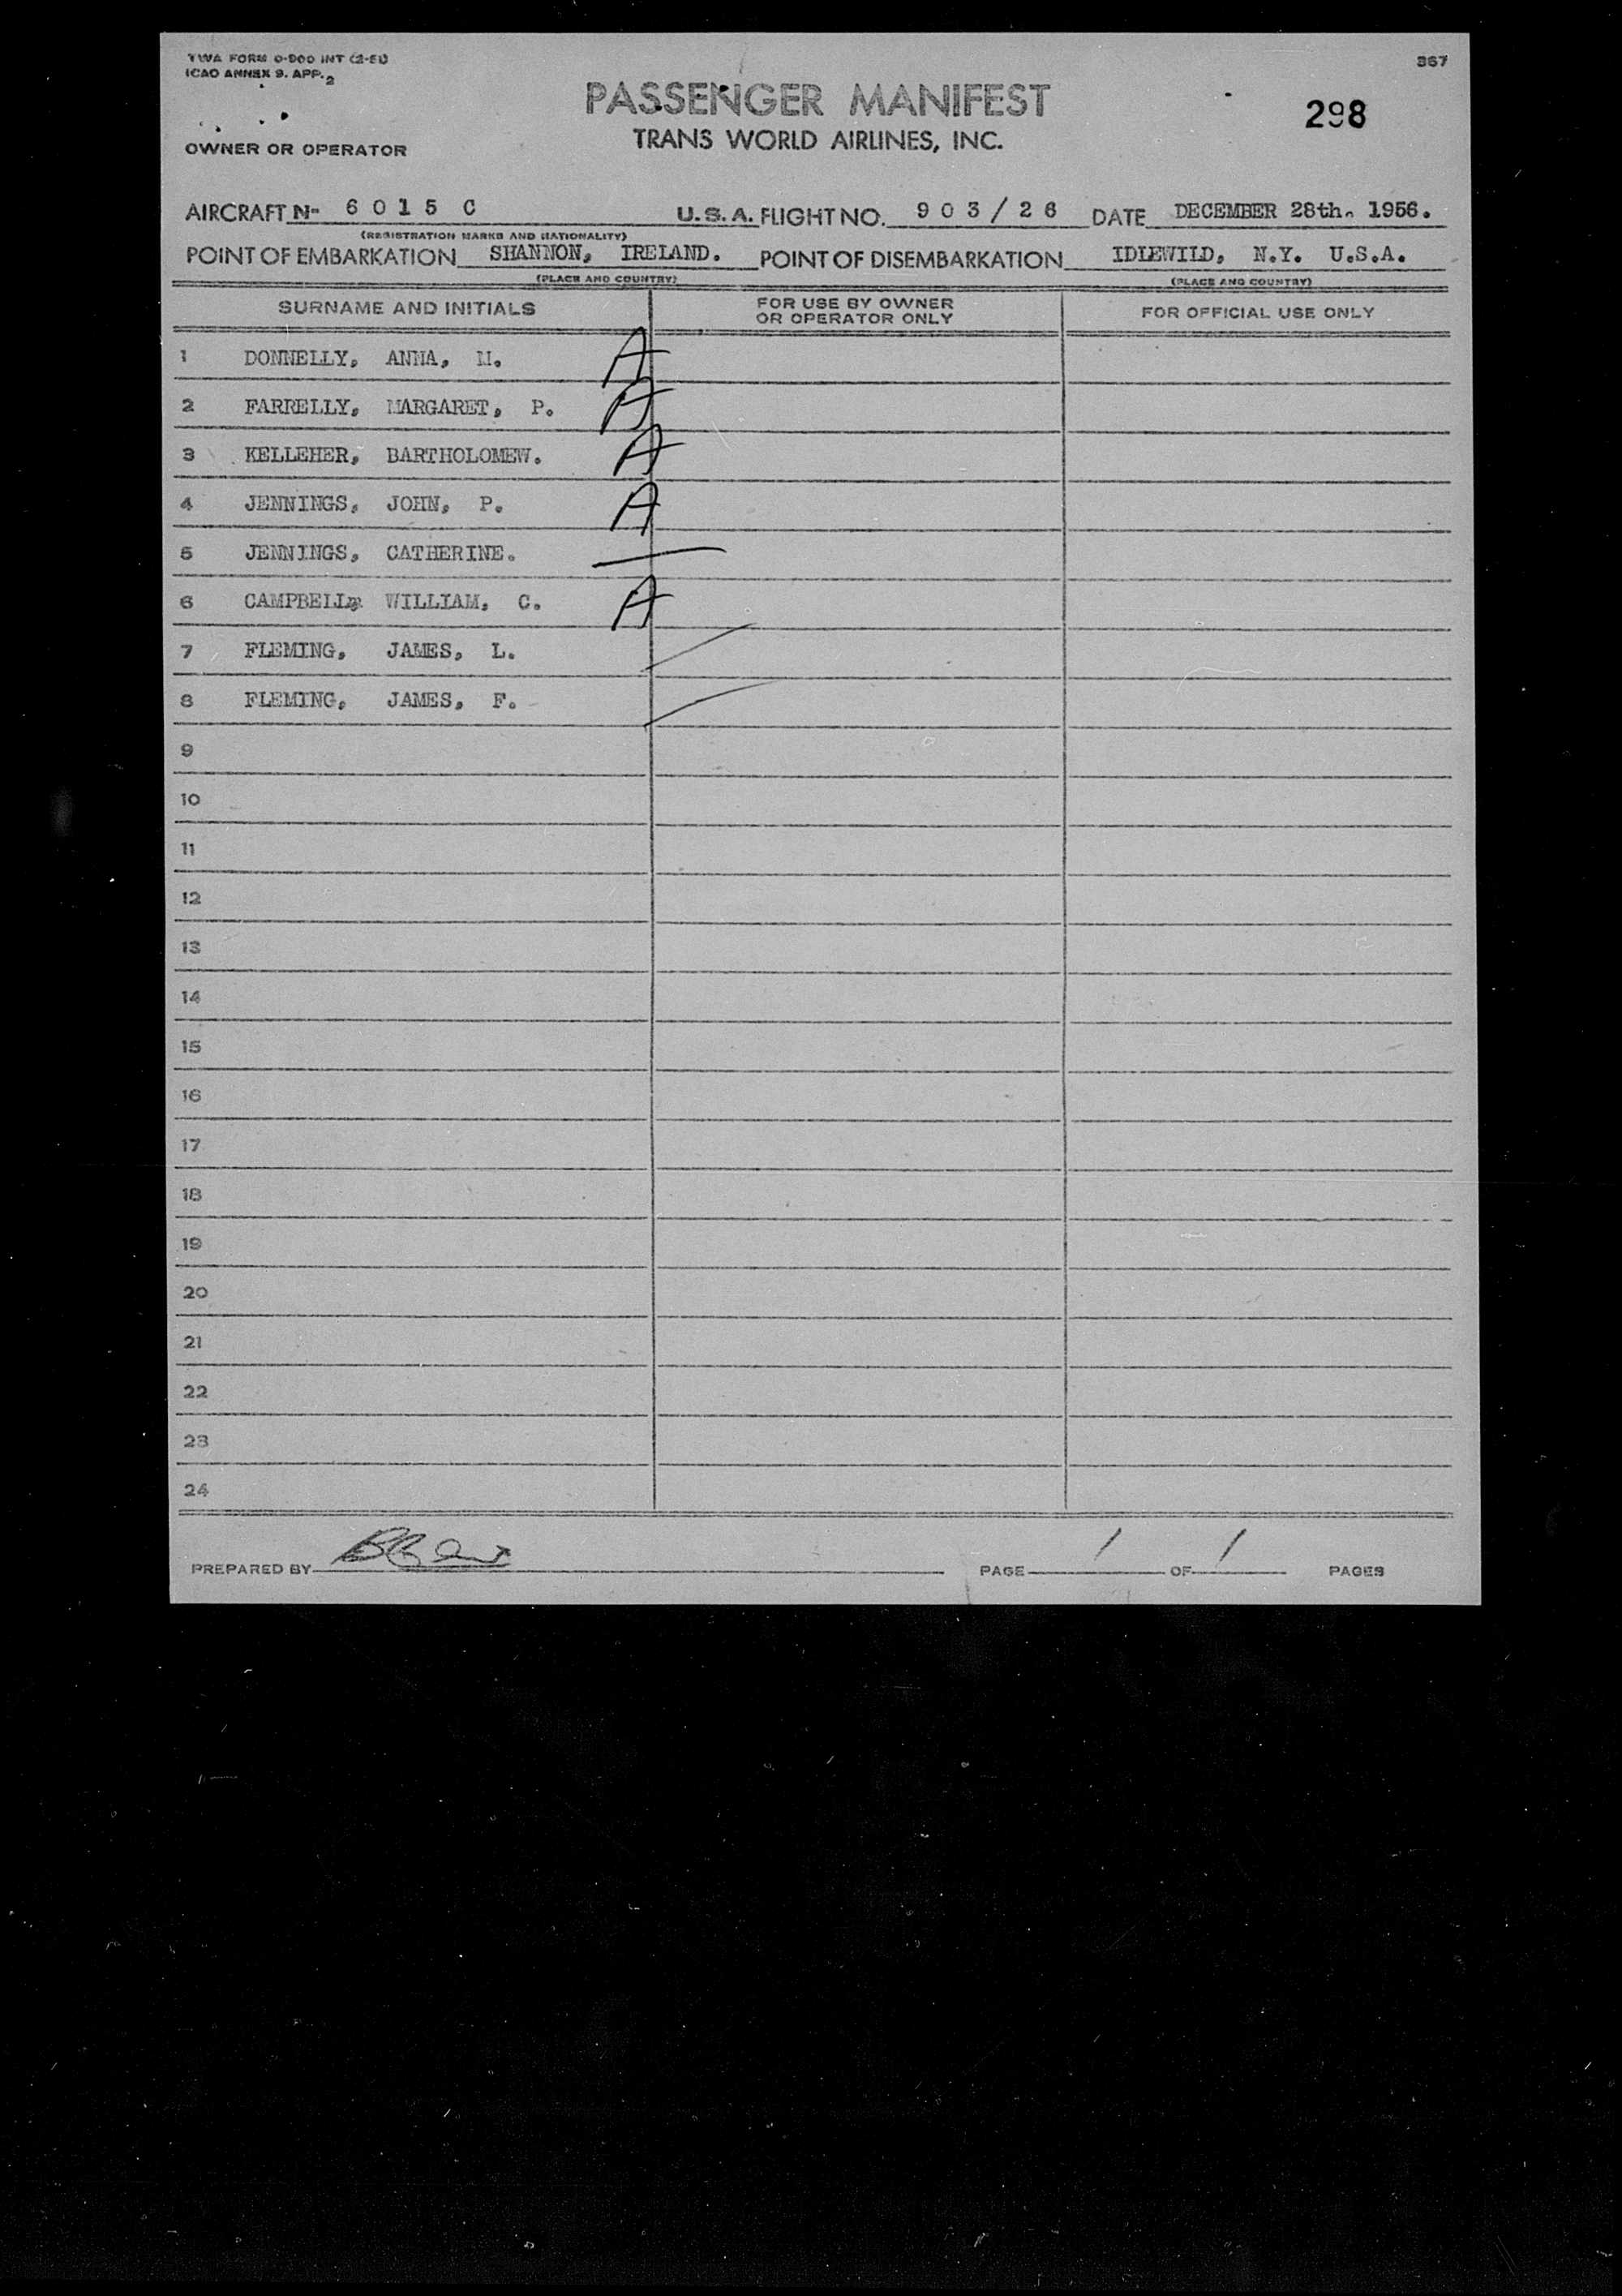 TWA FORM O-900 INT (2-51)
367
ICAO ANNEX 9. APP. 2
PASSENGER MANIFEST
298
TRANS WORLD AIRLINES, INC.
OWNER OR OPERATOR
AIRCRAFT N- 6 0 1 5 C U.S.A. FLIGHT NO. 9 0 3 / 2 6 DATE DECEMBER 28th. 1956.
(REGISTRATION MARKS AND NATIONALITY)
POINT OF EMBARKATION SHANNON, IRELAND. POINT OF DISEMBARKATION IDLEWILD, N.Y. U.S.A.
(PLACE AND COUNTRY) (PLACE AND COUNTRY)
SURNAME AND INITIALS FOR USE BY OWNER OR OPERATOR ONLY FOR OFFICIAL USE ONLY
1 DONNELLY, ANNA, M. A
2 FARRELLY, MARGARET, P. A
3 KELLEHER, BARTHOLOMEW. A
4 JENNINGS, JOHN, P. A
5 JENNINGS, CATHERINE.
6 CAMPBELL, WILLIAM, C. A
7 FLEMING, JAMES, L.
8 FLEMING, JAMES, F.
9
10
11
12
13
14
15
16
17
18
19
20
21
22
23
24
PREPARED BY PAGE 1 OF 1 PAGES